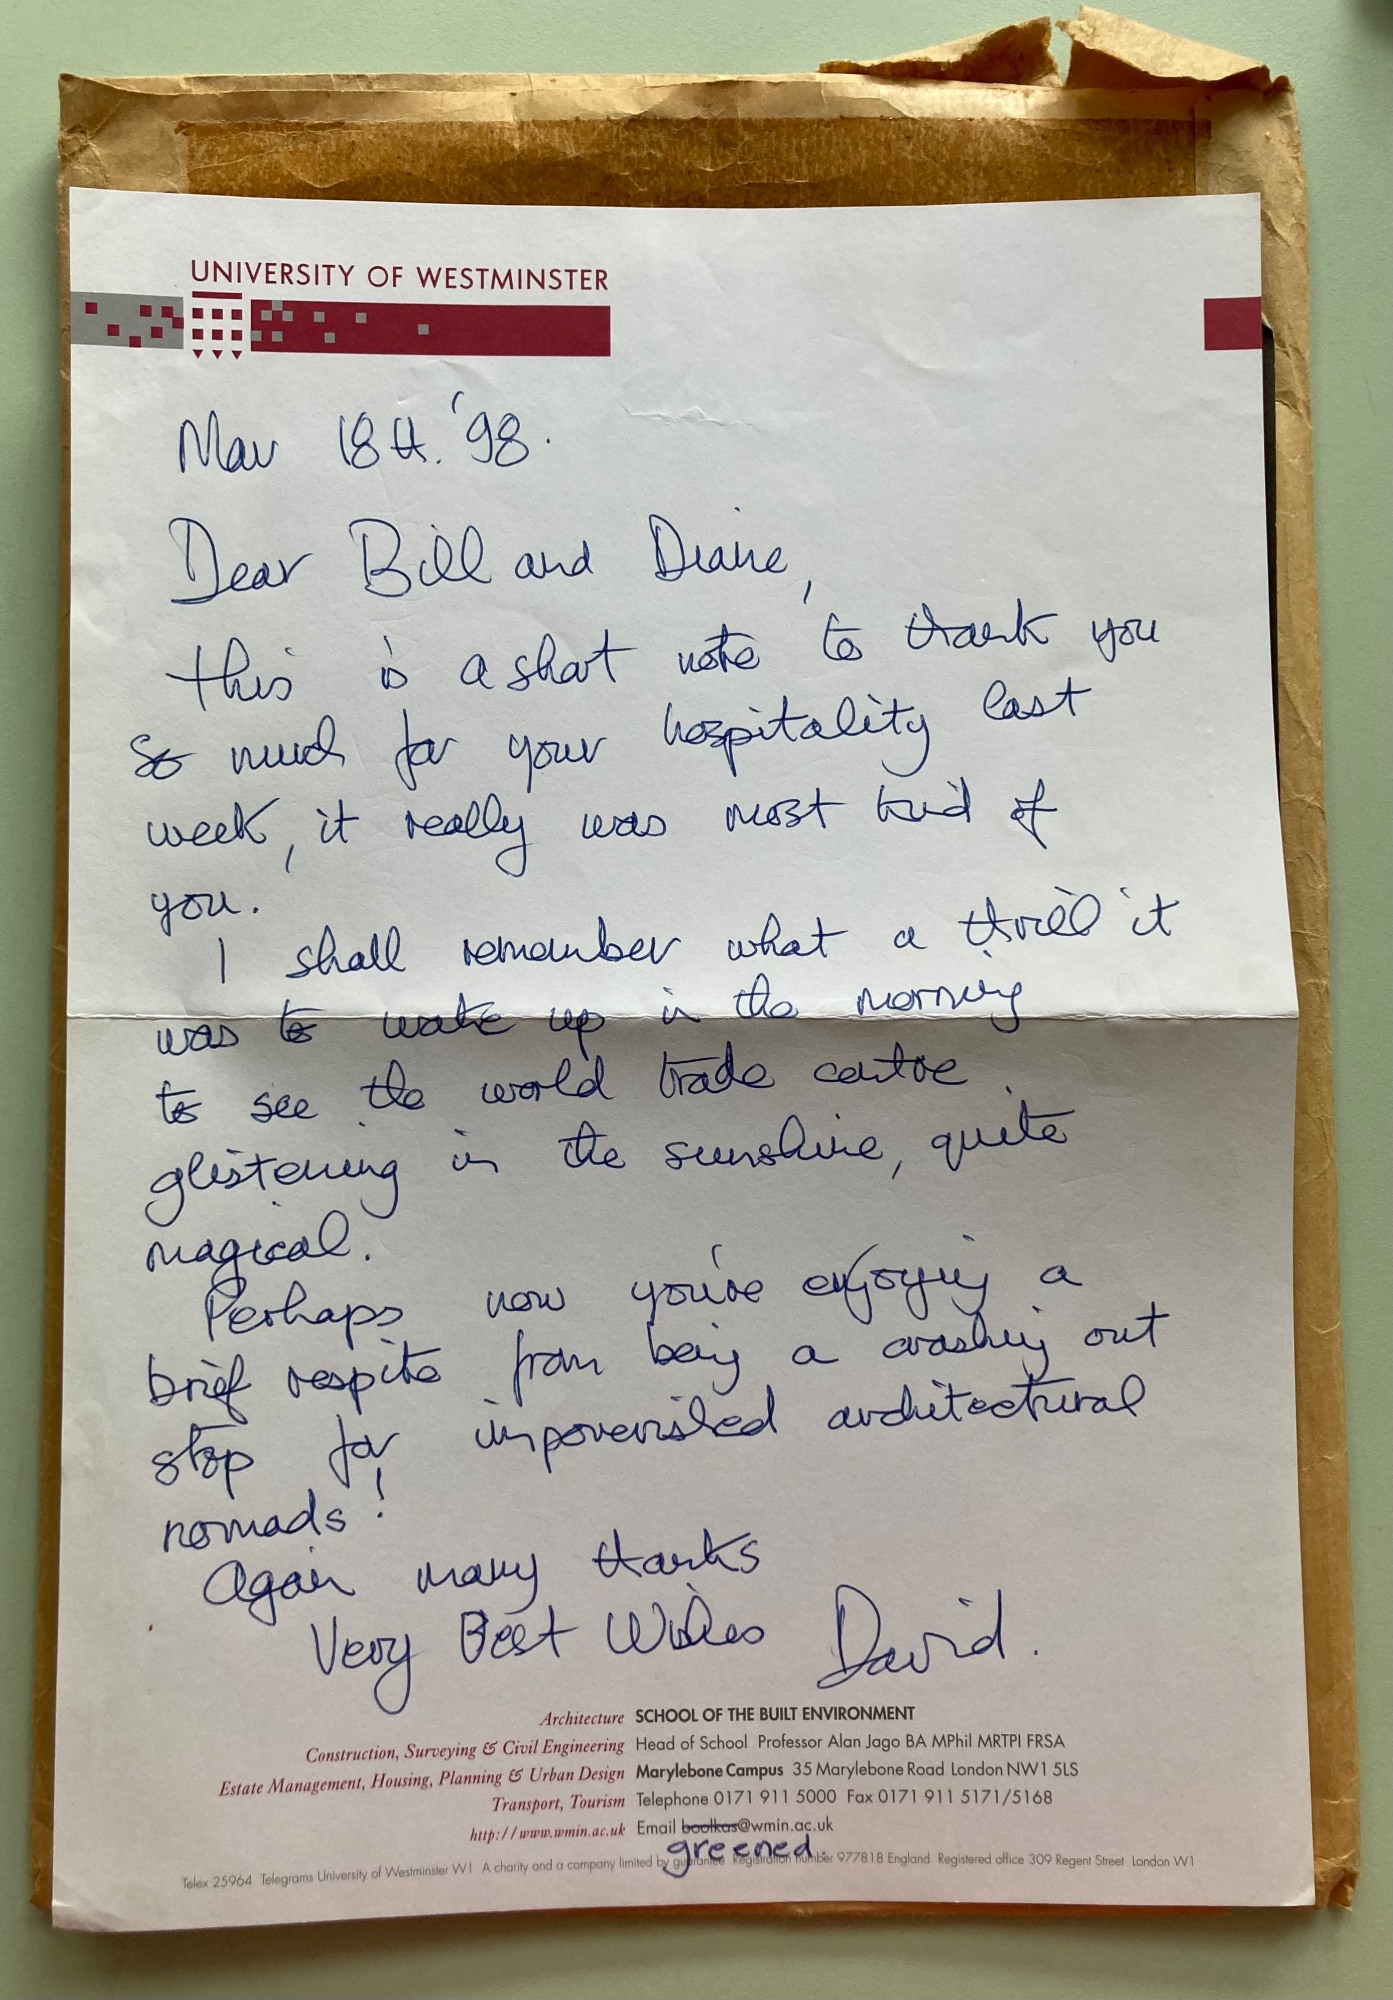 UNIVERSITY OF WESTMINSTER
Mar 18th. '98.
Dear Bill and Diane,
this is a short note to thank you
so much for your hospitality last
week, it really was most kind of
you.
I shall remember what a thrill it
was to wake up in the morning
to see the world trade centre
glistening in the sunshine, quite
magical.
Perhaps now you're enjoying a
brief respite from being a crashing out
stop for impoverished architectural
nomads!
Again many thanks
Very Best Wishes David.
Architecture SCHOOL OF THE BUILT ENVIRONMENT
Construction, Surveying & Civil Engineering Head of School Professor Alan Jago BA MPhil MRTPI FRSA
Estate Management, Housing, Planning & Urban Design Marylebone Campus 35 Marylebone Road London NW1 5LS
Transport, Tourism Telephone 0171 911 5000 Fax 0171 911 5171/5168
http://www.wmin.ac.uk Email boolkas@wmin.ac.uk
greened
Telex 25964 Telegrams University of Westminster W1 A charity and a company limited by guarantee Registration number 977818 England Registered office 309 Regent Street London W1